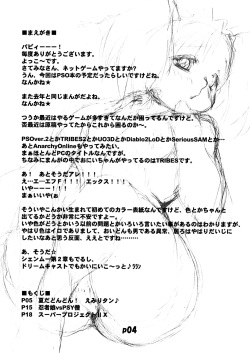 ■まえがき■
バビィーーー！
毎度ありがとうございます。
よっこ～です。
さてみなさん、ネットゲームやってますか？
うん、今回はPSO本の予定だったらしいですけどね。
なんかね★
また去年と同じまんがだよね。
なんかね★
つうか最近はやるゲームが多すぎてなんだか困ってるんですけど、
否最近は原稿やってたからこれから困るのか～。
PSOver.2とかTRIBES2とかUO3DとかDiablo2LoDとかSeriousSAMとか…
あとAnarchyOnlineもやってみたい。
まぁほとんどPCのタイトルなんですが。
ちなみにまんがの中でおにいちゃんがやってるのはTRIBESです。
あ！　あとそうだアレ！！！
え－エ－エフ！！！！　エックス！！！
いやーーー！！
まぁいいや(ぉ
そういやこんかい生まれて初めてのカラー表紙なんですけど、色とかちゃんと
出てるかどうかが非常に不安ですよ…。
いや色がどうとかいう以前の問題とかいろいろ言いたい事があるのはわかりますが、
やはり色はイロでありまして、おいどんも男である異常、散らばやりはだいじに
したいなあと思う反面、ええとですね…
あ、そうだ☆
シェンムー第2章もでるし、
ドリームキャストでもかいにいこ～っと♪
■もくじ■
P05　夏だどんどん！　えみりタン♪
P15　忍者娘vsPSY機
P18　スーパープロジェクトIIX
p04